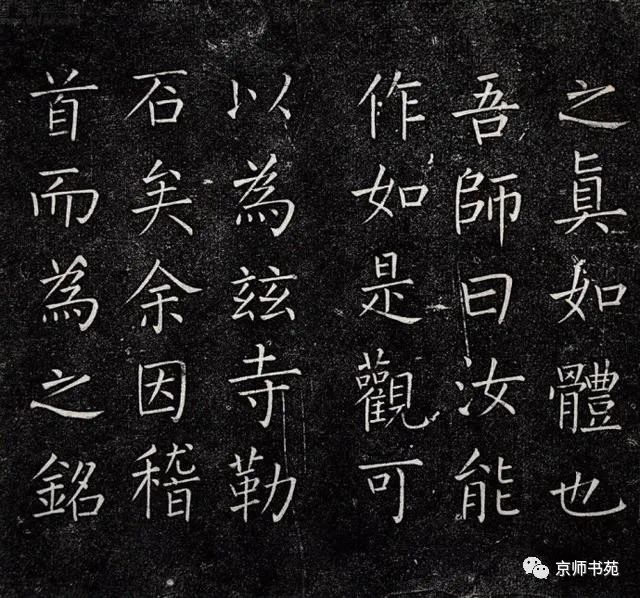 之眞如體也
吾師曰汝能
作如是觀可
以為玆寺勒
石矣余因稽
首而為之銘
京师书苑